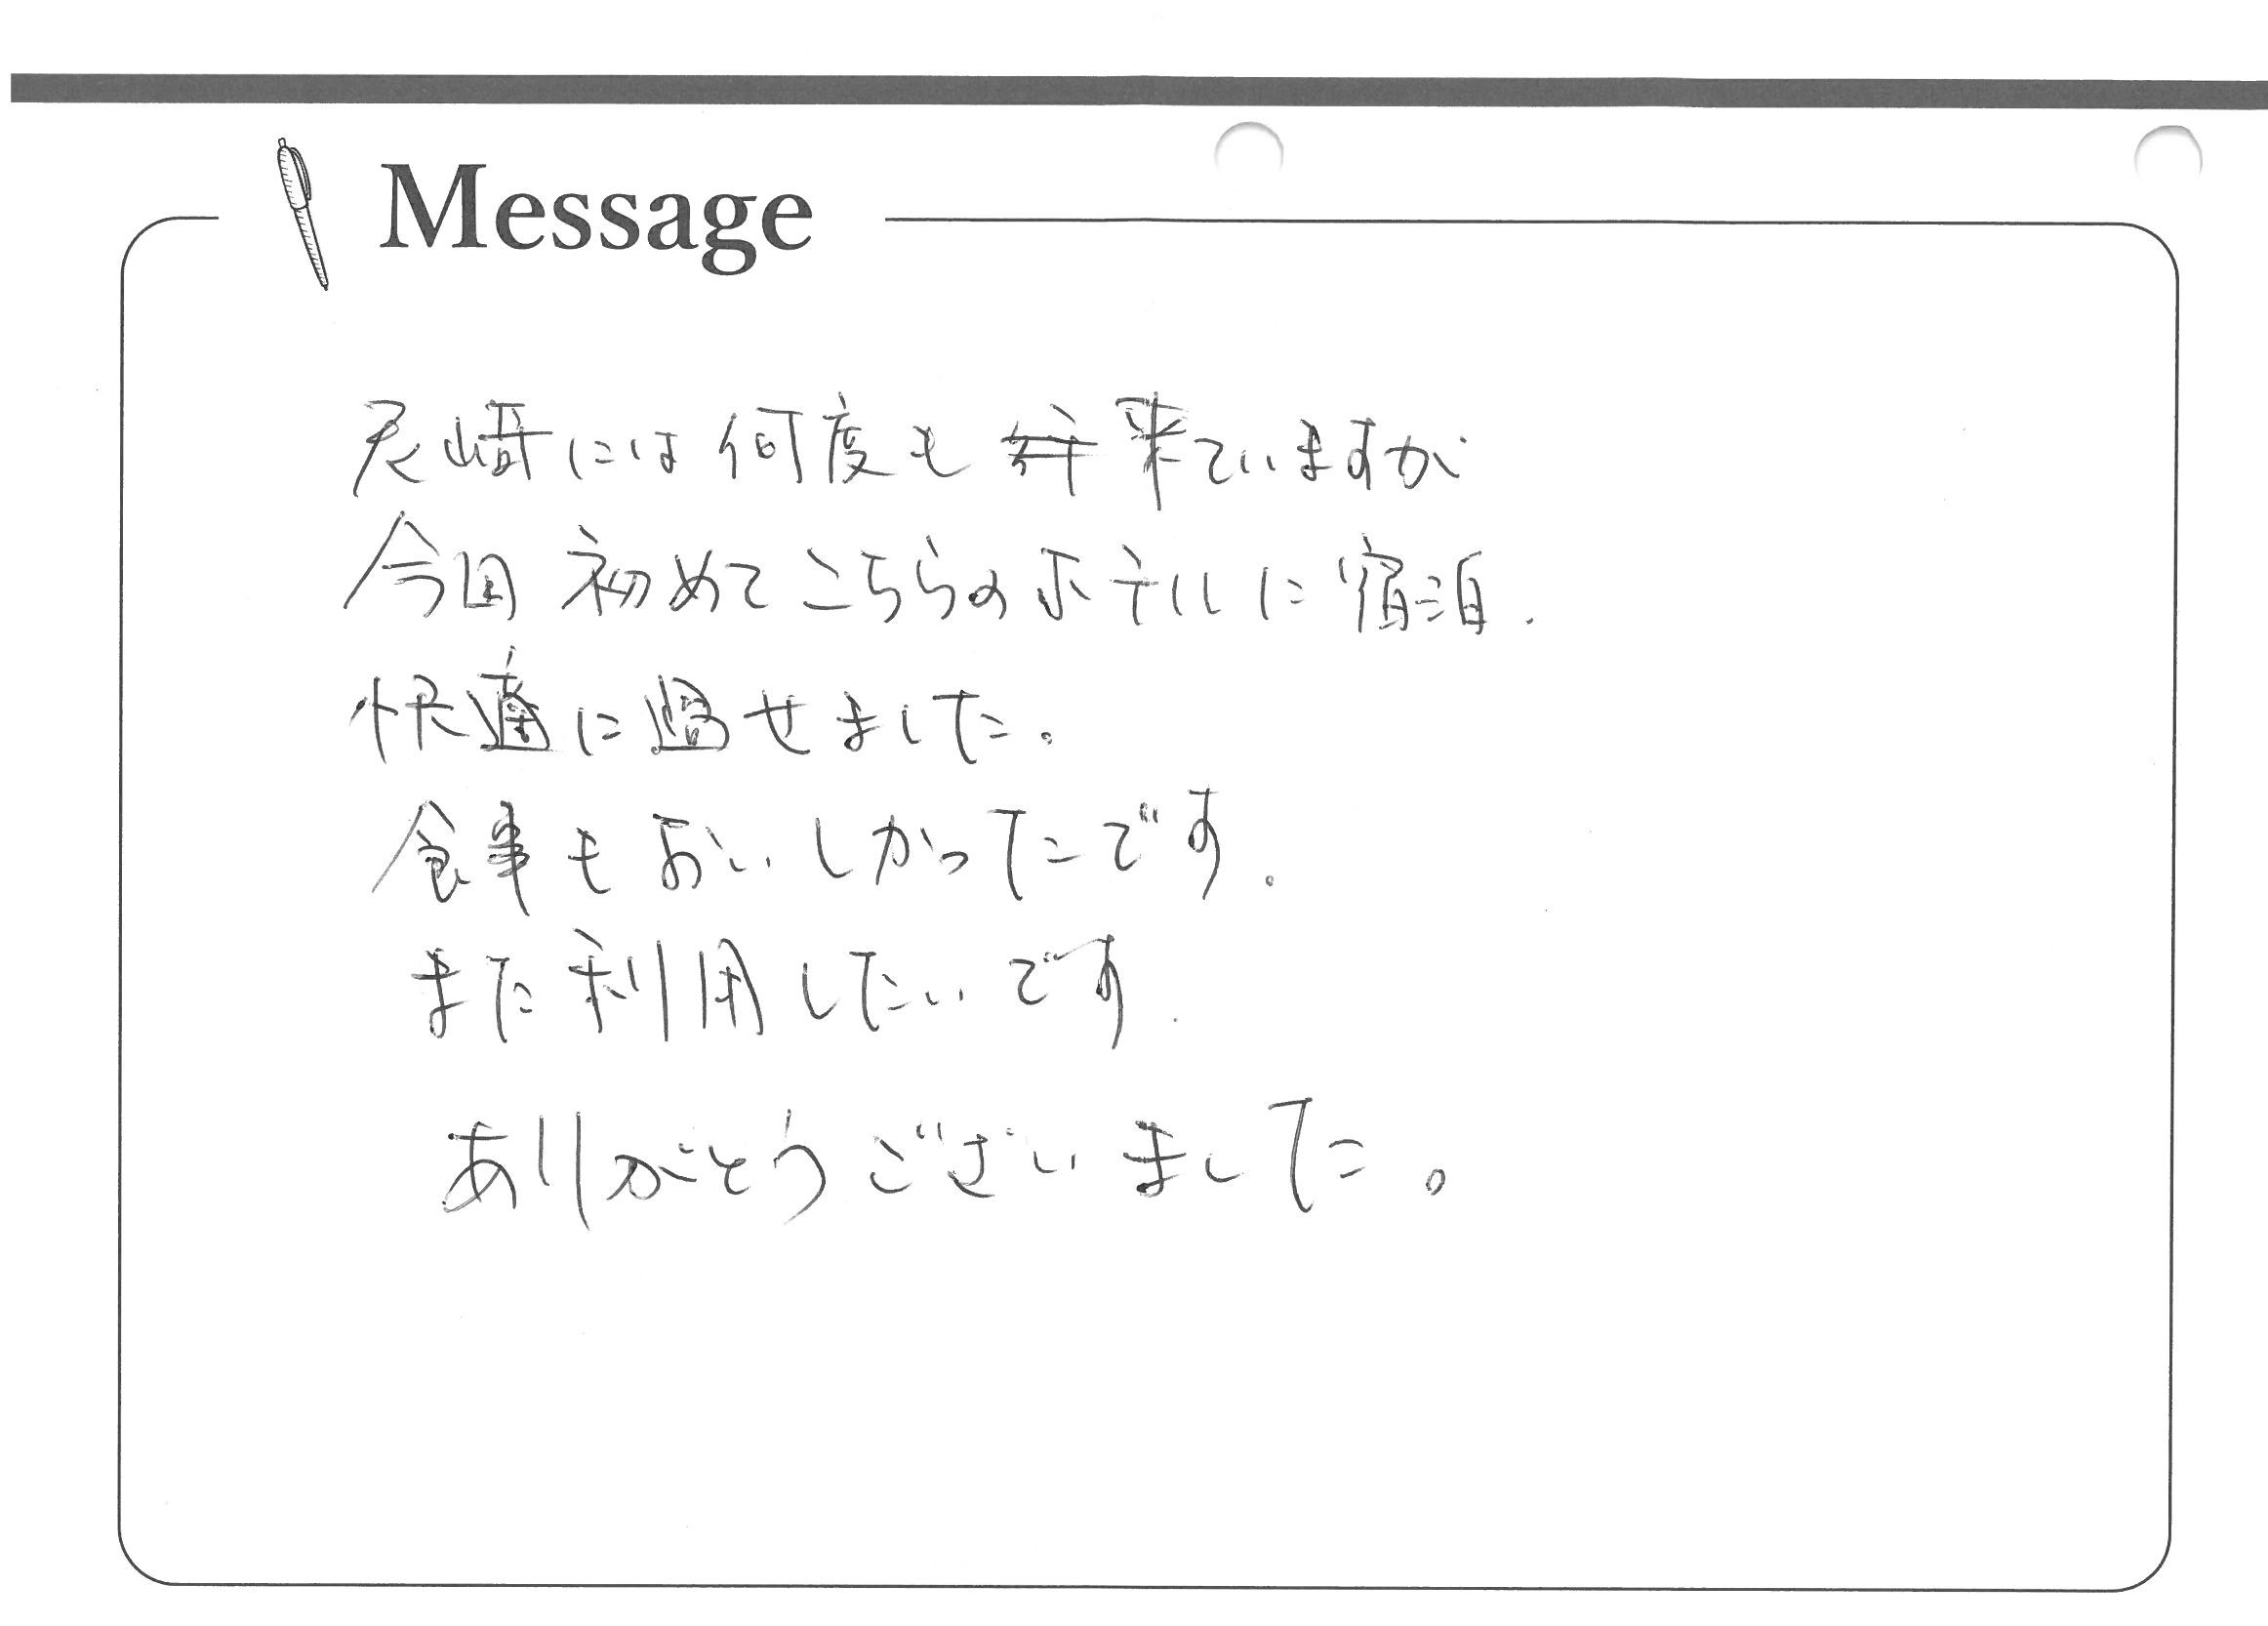 Message
尼崎には何度も来ていますが
今回初めてこちらのホテルに宿泊.
快適に過せました。
食事もおいしかったです。
また利用したいです.
ありがとうございました。